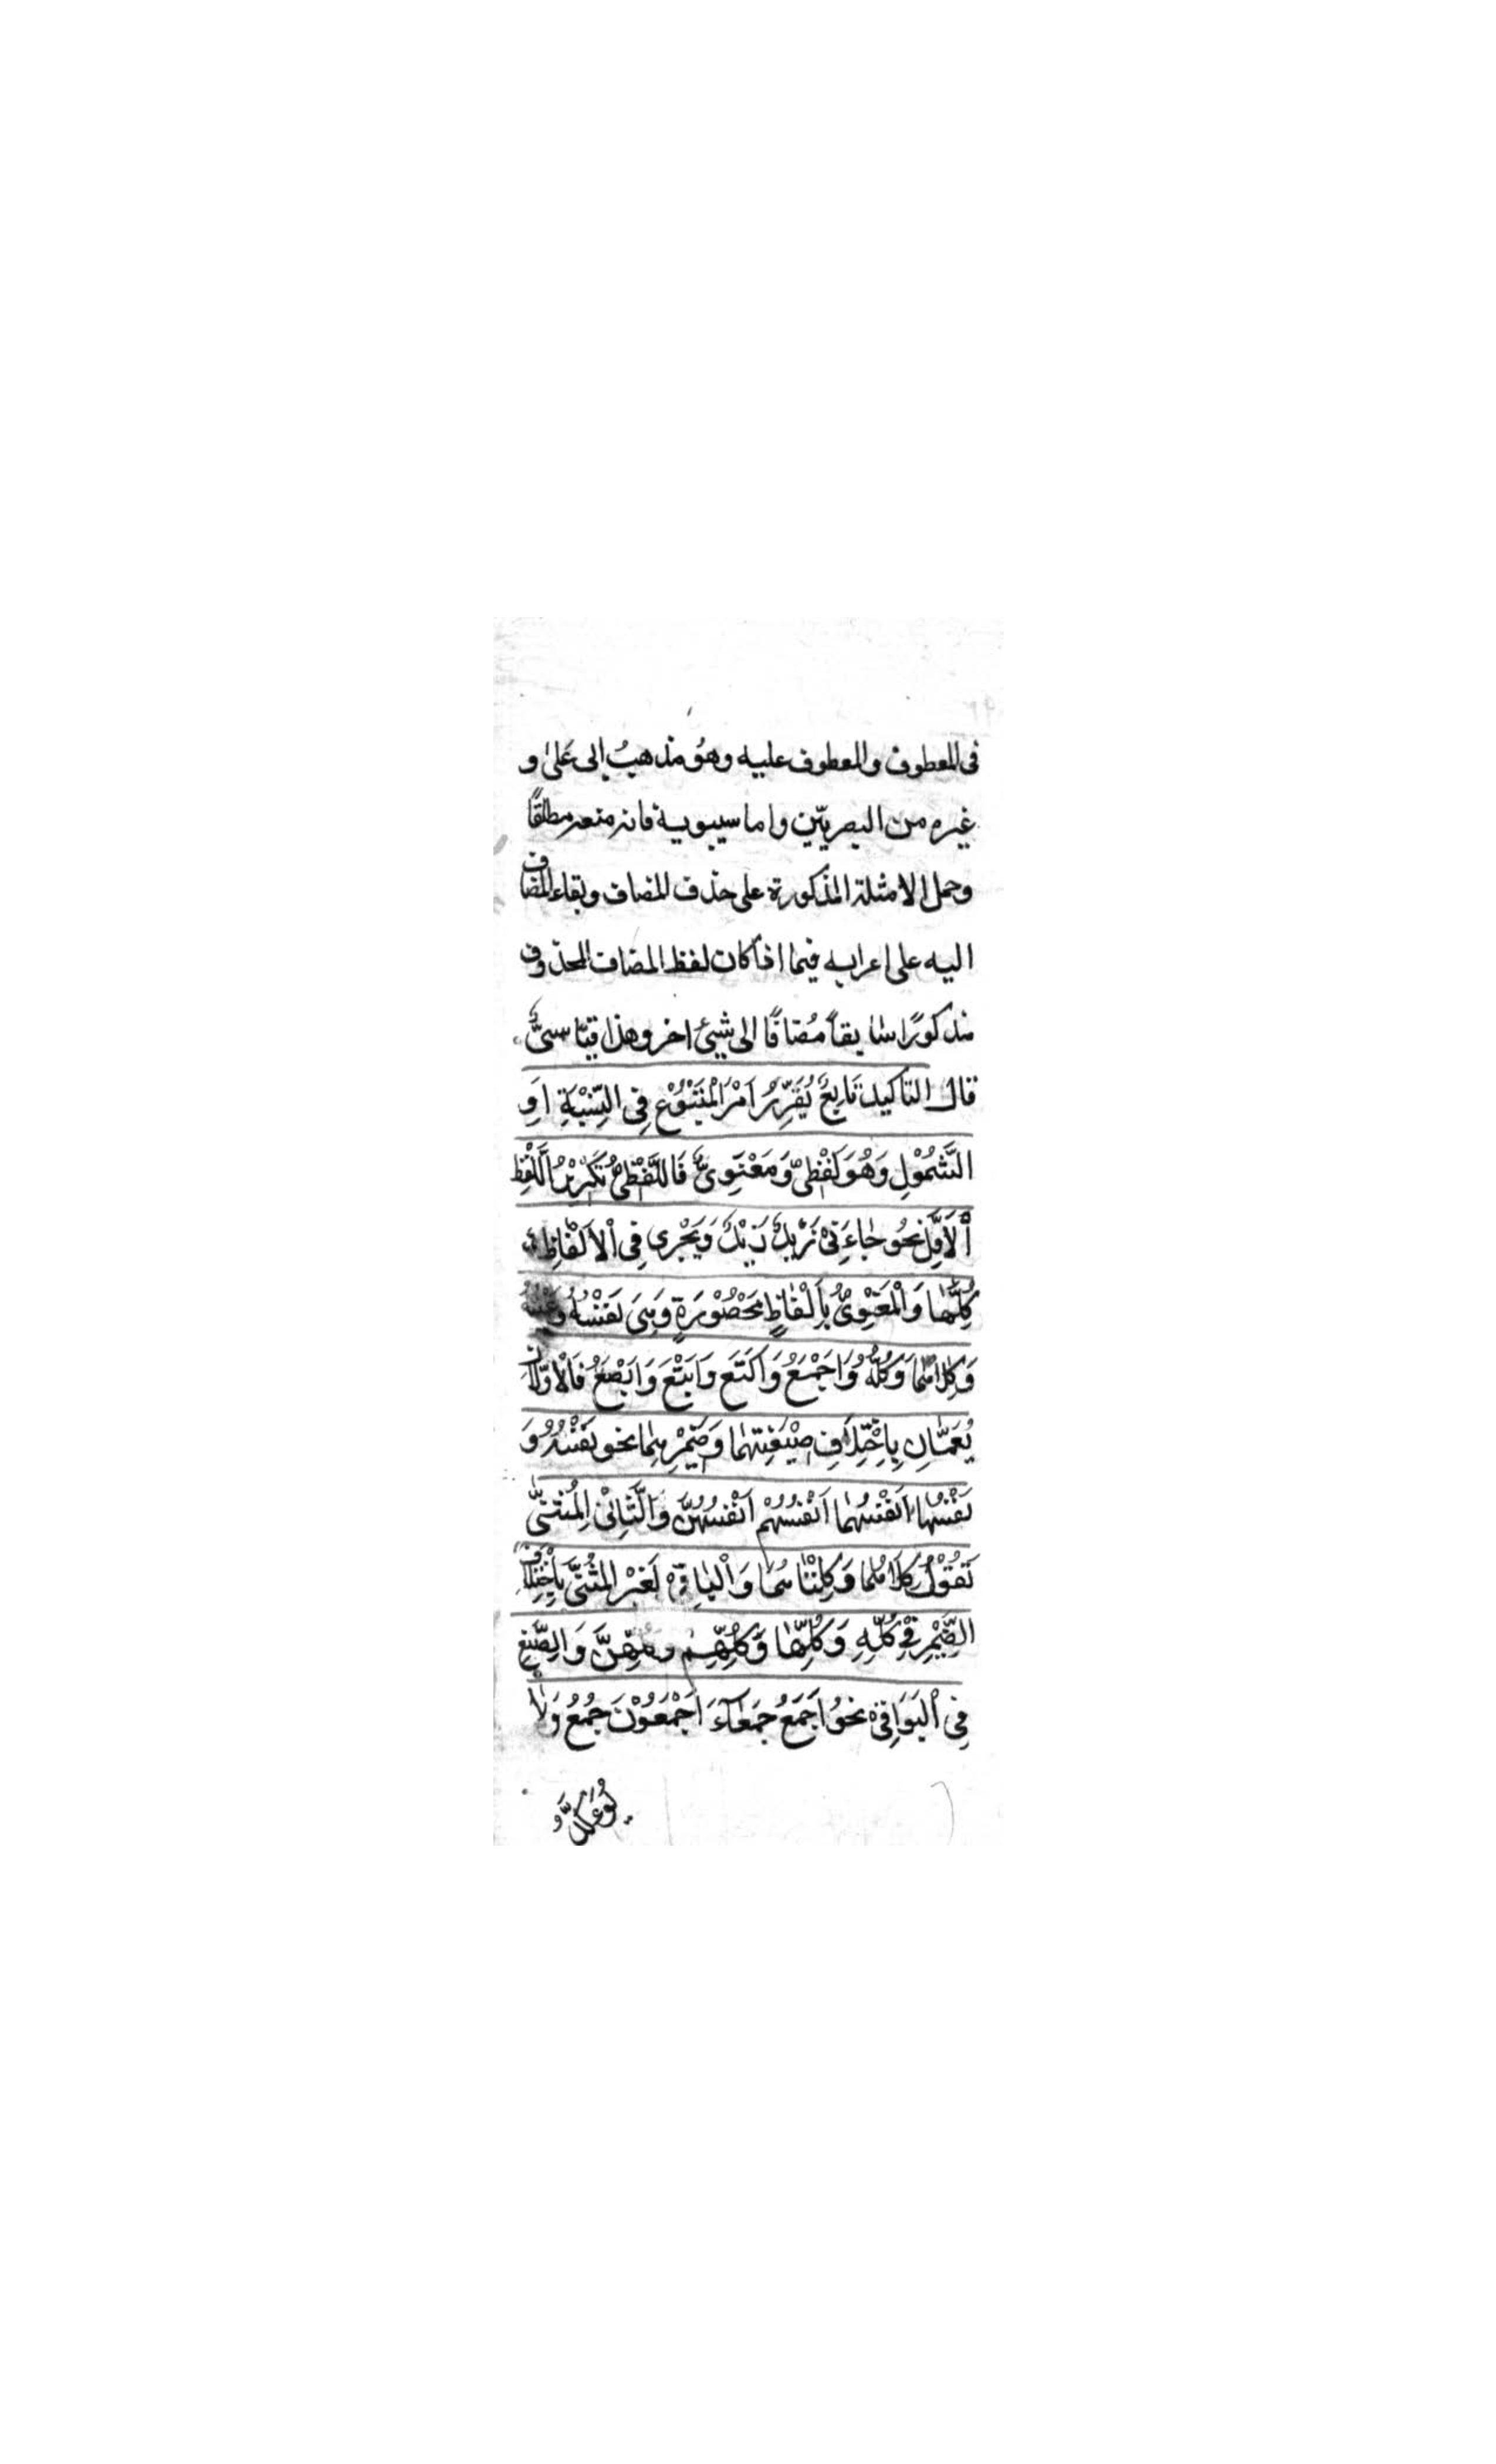 فى المعطوف والمعطوف عليه وهُو مذهبُ ابى عَلىٰ و
غيره من البصريّين واما سيبويه فانه منعه مطلقًا
وحمل الامثلة المذكورة على حذف المضاف وبقاء المضاف
اليه على اعرابه فيما اذا كان لفظ المضاف المحذوف
مذكورًا سابقاً مُضافًا الى شيئ اخر وهذا قياسىٌّ
قال التاكيد تَابِعٌ يُقَرِّرُ اَمْرَ الْمَتْبُوْعِ فِى النِّسْبَةِ اَوِ
الشُّمُوْلِ وَهُوَ لَفْظِىٌّ وَمَعْنَوِىٌّ فَاللَّفْظِىُّ تَكْرِيْرُ اللَّفْظِ
اْلاَوَّلِ نحوُ جَاءَنِىْ زَيْدٌ زَيْدٌ وَيَجْرِى فِى اْلاَلْفَاظِ
كُلِّهَا وَالْمَعْنَوِىُّ بِاَلْفَاظٍ مَحْصُوْرَةٍ وَهِىَ نَفْسُهُ وَعَيْنُهُ
وَكِلاَهُمَا وَكُلُّهُ وَاَجْمَعُ وَاَكْتَعُ وَاَبْتَعُ وَاَبْصَعُ فَالْاَوَّلاَنِ
يَعُمَّانِ بِاِخْتِلاَفِ صِيْغَتِهِمَا وَضَمِيْرِهِمَا نحو نَفْسُهُ وَ
نَفْسُهَا اَنْفُسُهُمَا اَنْفُسُهُمْ اَنْفُسُهُنَّ وَالثَّانِىْ لِلْمُثَنّٰى
تَقُوْلُ كِلاَهُمَا وَكِلْتَاهُمَا وَالْبَاقِىْ لِغَيْرِ الْمُثَنّٰى بِاِخْتِلاَفِ
الضَّمِيْرِ فِىْ كُلِّهِ وَكُلِّهَا وَكُلِّهِمْ وَكُلِّهِنَّ وَالصِّيَغِ
فِى اْلبَوَاقِىْ نحوُ اَجْمَعُ جَمْعَآءُ اَجْمَعُوْنَ جُمَعُ وَلاَ
يُؤَكَّدُ